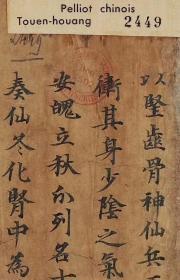 Pelliot chinois
Touen-houang 2449
以堅齒骨神仙兵
衛其身少陰之氣
安魄立秋分列名
奏仙冬化腎中為